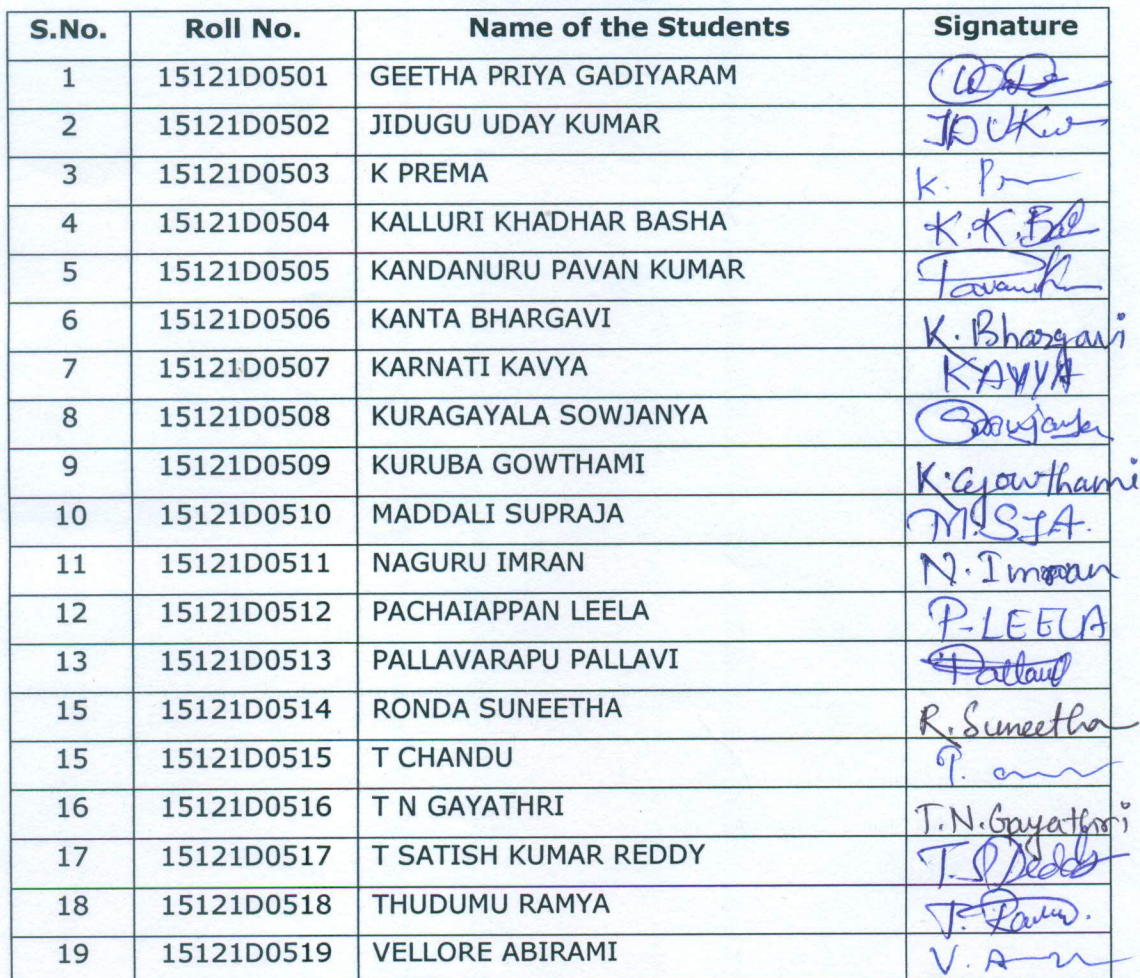 S.No. Roll No. Name of the Students Signature
1 15121D0501 GEETHA PRIYA GADIYARAM
2 15121D0502 JIDUGU UDAY KUMAR
3 15121D0503 K PREMA K. P
4 15121D0504 KALLURI KHADHAR BASHA K.K.
5 15121D0505 KANDANURU PAVAN KUMAR
6 15121D0506 KANTA BHARGAVI K. Bhargavi
7 15121D0507 KARNATI KAVYA KAVYA
8 15121D0508 KURAGAYALA SOWJANYA Sowjanya
9 15121D0509 KURUBA GOWTHAMI K. Gowthami
10 15121D0510 MADDALI SUPRAJA M.SJA.
11 15121D0511 NAGURU IMRAN N. Imran
12 15121D0512 PACHAIAPPAN LEELA P-LEELA
13 15121D0513 PALLAVARAPU PALLAVI Pallavi
15 15121D0514 RONDA SUNEETHA R. Suneetha
15 15121D0515 T CHANDU
16 15121D0516 T N GAYATHRI T.N.Gayathri
17 15121D0517 T SATISH KUMAR REDDY T.S Reddy
18 15121D0518 THUDUMU RAMYA T. Ramya.
19 15121D0519 VELLORE ABIRAMI V. A